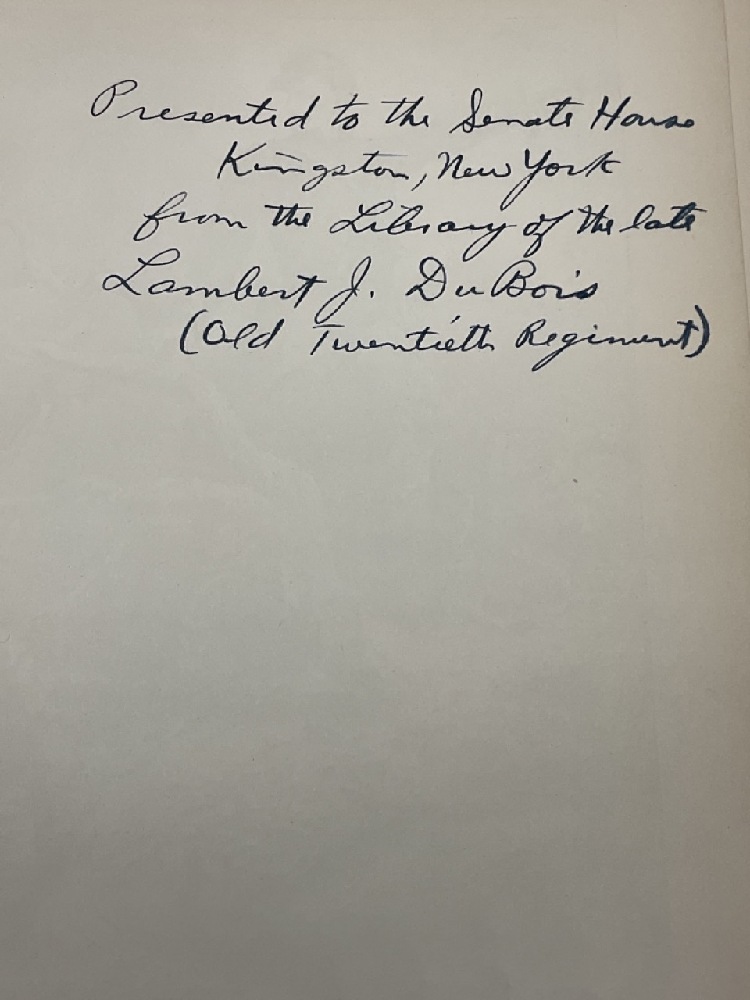 Presented to the Senate House
Kingston, New York
from the Library of the late
Lambert J. DuBois
(Old Twentieth Regiment)